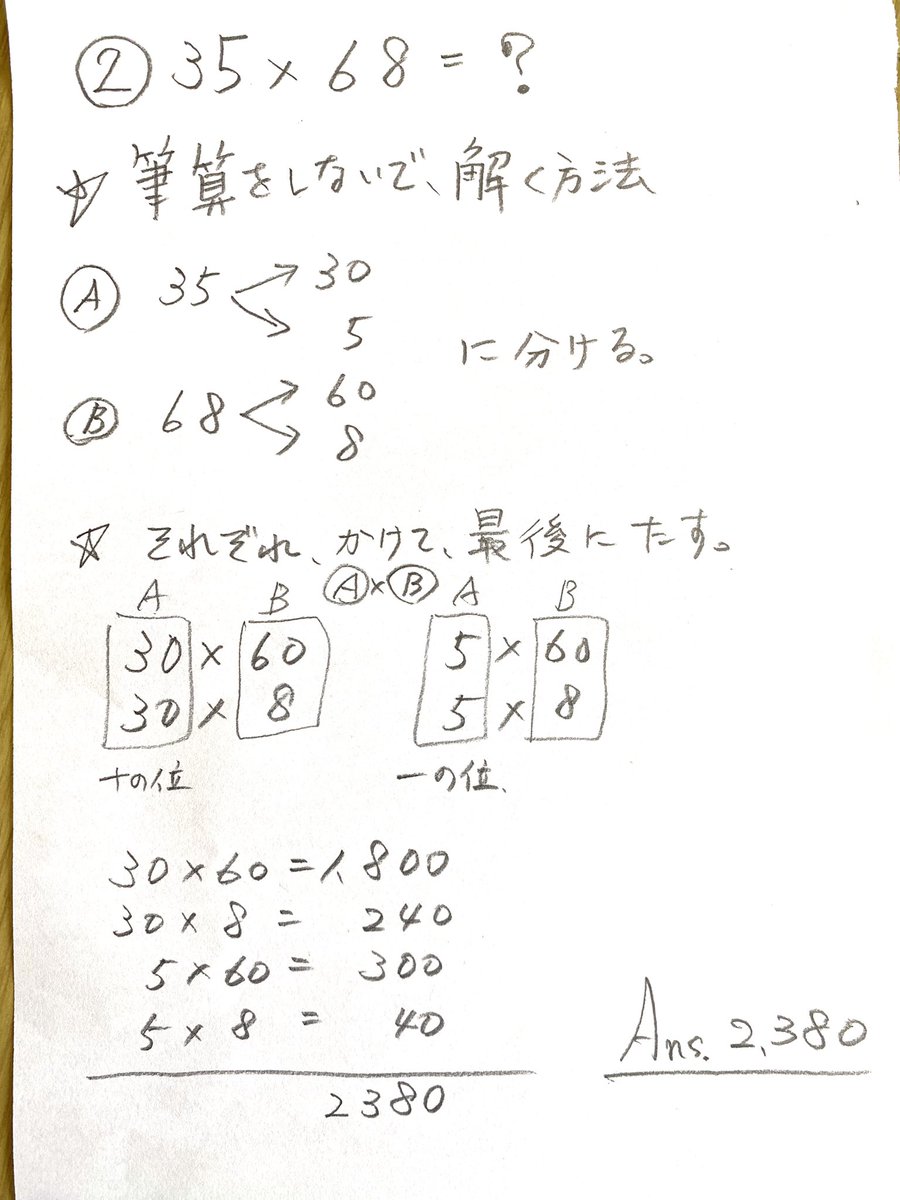 ② 35 × 68 = ?
☆ 筆算をしないで、解く方法
Ⓐ 35 30
5
に分ける。
Ⓑ 68 60
8
☆ それぞれ、かけて、最後にたす。
Ⓐ×Ⓑ
A B A B
30 × 60 5 × 60
30 × 8 5 × 8
十の位 一の位
30 × 60 = 1,800
30 × 8 = 240
5 × 60 = 300
5 × 8 = 40
2380
Ans. 2,380